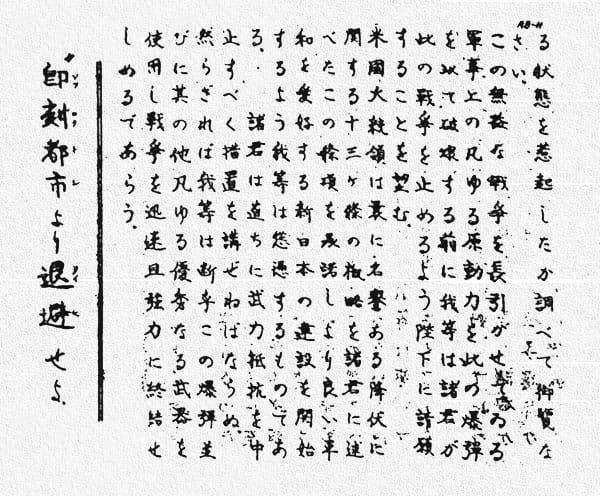 AB-11
る状態を惹起したか調べて御覧な
さい。
この無益な戦争を長引かせてゐる
軍事上の凡ゆる原動力を此の爆弾
を以て破壊する前に我等は諸君が
此の戦争を止めるよう陛下に請願
することを望む。
米國大統領は曩に名誉ある降伏に
関する十三ヶ條の概略を諸君に述
べたこの條項を承諾しより良い平
和を愛好する新日本の建設を開始
するよう我等は慫慂するものであ
る。諸君は直ちに武力抵抗を中
止すべく措置を講ぜねばならぬ。
然らざれば我等は断乎この爆弾並
びに其の他凡ゆる優秀なる武器を
使用し戦争を迅速且強力に終結せ
しめるであらう。
"即刻都市より退避せよ.